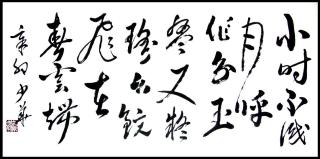 小时不识
月呼
作白玉
盘又疑
瑶台镜
飞在
青云端
辛卯